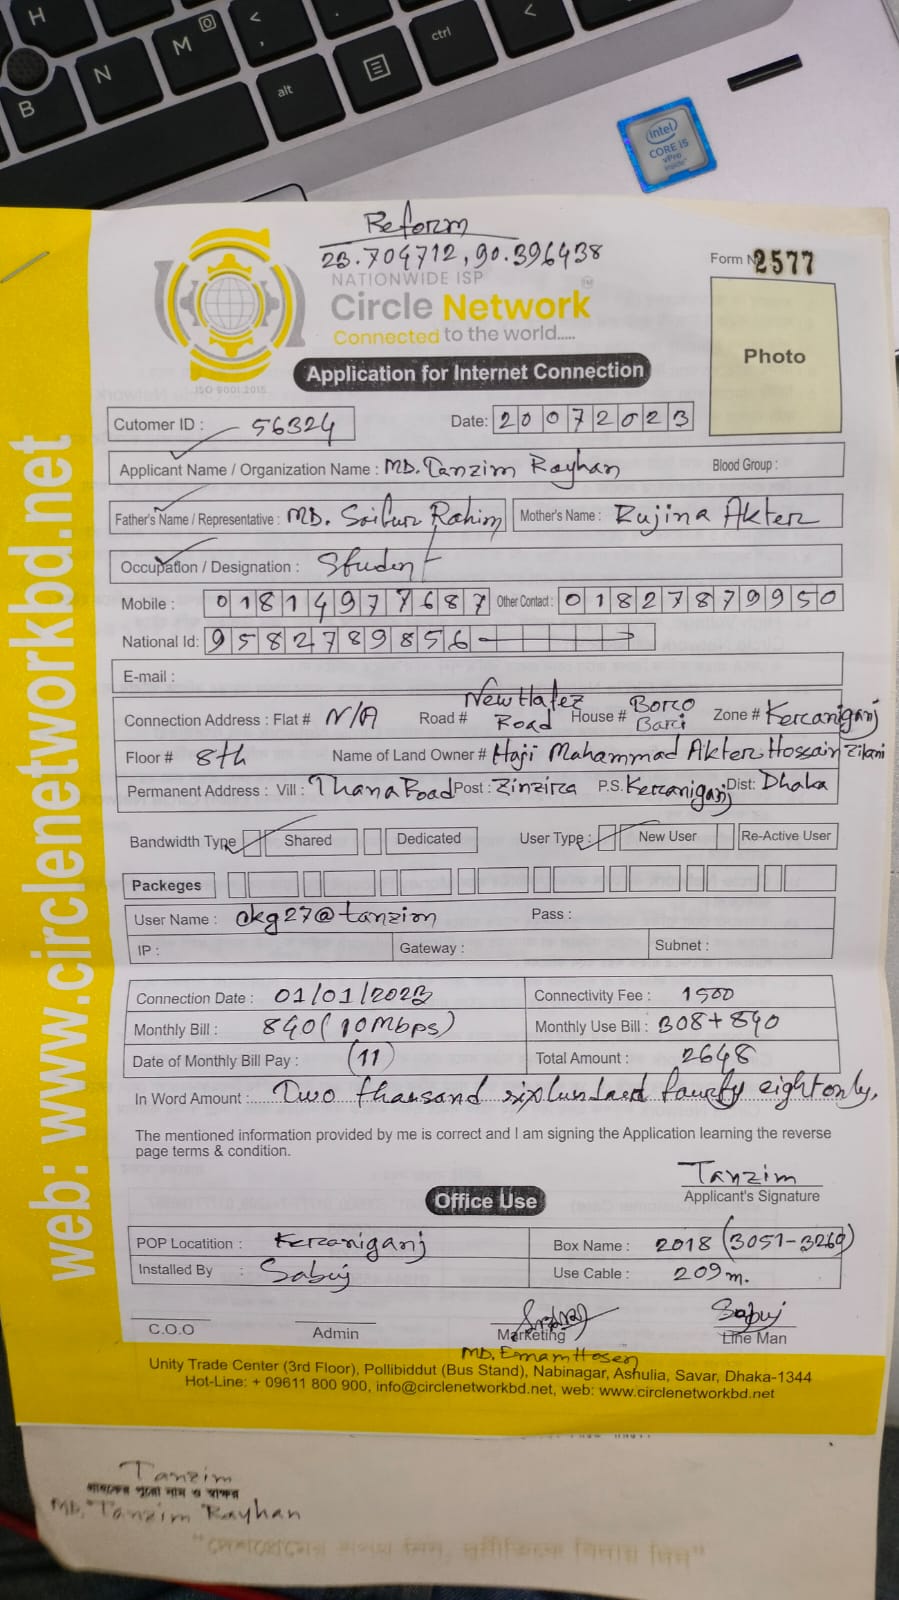 H
N
M
<
,
B
alt
ctrl
<
intel
CORE i5
vPro
inside
Reform
23.704712, 90.396438
NATIONWIDE ISP
Circle Network
Connected to the world.....
ISO 9001:2015
Form N 2577
Photo
Application for Internet Connection
Cutomer ID : 56324 Date: 20072023
Applicant Name / Organization Name : MD. Tanzim Rayhan Blood Group :
Father's Name / Representative : MD. Saifur Rahim Mother's Name : Rujina Akter
Occupation / Designation : Student
Mobile : 01814977687 Other Contact : 01827879950
National Id: 9582789856
E-mail :
Connection Address : Flat # N/A Road # New Hafez Road House # Boro Bari Zone # Keraniganj
Floor # 8th Name of Land Owner # Haji Mahammad Akter Hossain Zilani
Permanent Address : Vill : Thana Road Post : Zinzira P.S. Keraniganj Dist: Dhaka
Bandwidth Type Shared Dedicated User Type : New User Re-Active User
Packeges
User Name : ckg27@tanzim Pass :
IP : Gateway : Subnet :
Connection Date : 01/01/2023 Connectivity Fee : 1500
Monthly Bill : 840 (10Mbps) Monthly Use Bill : 308+840
Date of Monthly Bill Pay : (11) Total Amount : 2648
In Word Amount : Two thausand sixhundred fourty eight only,
The mentioned information provided by me is correct and I am signing the Application learning the reverse
page terms & condition.
Tanzim
Applicant's Signature
Office Use
POP Locatition : Keraniganj Box Name : 2018 (3051-3269)
Installed By : Sabuj Use Cable : 209m.
Sabuj
C.O.O Admin Marketing Line Man
MD. Emam Hosen
Unity Trade Center (3rd Floor), Pollibiddut (Bus Stand), Nabinagar, Ashulia, Savar, Dhaka-1344
Hot-Line: + 09611 800 900, info@circlenetworkbd.net, web: www.circlenetworkbd.net
web: www.circlenetworkbd.net
Tanzim
গ্রাহকের পুরো নাম ও স্বাক্ষর
MD. Tanzim Rayhan